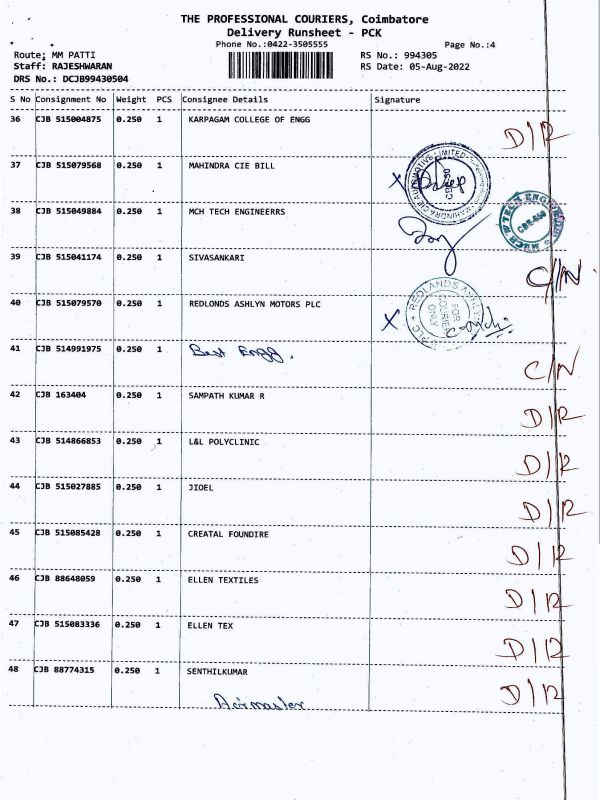 THE PROFESSIONAL COURIERS, Coimbatore
Delivery Runsheet - PCK
Phone No.:0422-3505555 Page No.:4
Route: MM PATTI RS No.: 994305
Staff: RAJESHWARAN RS Date: 05-Aug-2022
DRS No.: DCJB99430504
S No Consignment No Weight PCS Consignee Details Signature
36 CJB 515004875 0.250 1 KARPAGAM COLLEGE OF ENGG D/R
37 CJB 515079568 0.250 1 MAHINDRA CIE BILL X
38 CJB 515049884 0.250 1 MCH TECH ENGINEERRS
39 CJB 515041174 0.250 1 SIVASANKARI C/N
40 CJB 515079570 0.250 1 REDLONDS ASHLYN MOTORS PLC X
REDLANDS
FOR
COURIER
ONLY
41 CJB 514991975 0.250 1 Best Engg. C/N
42 CJB 163404 0.250 1 SAMPATH KUMAR R D/R
43 CJB 514866853 0.250 1 L&L POLYCLINIC D/R
44 CJB 515027885 0.250 1 JIOEL D/R
45 CJB 515085428 0.250 1 CREATAL FOUNDIRE D/R
46 CJB 88648059 0.250 1 ELLEN TEXTILES D/R
47 CJB 515083336 0.250 1 ELLEN TEX D/R
48 CJB 88774315 0.250 1 SENTHILKUMAR D/R
Airmaster